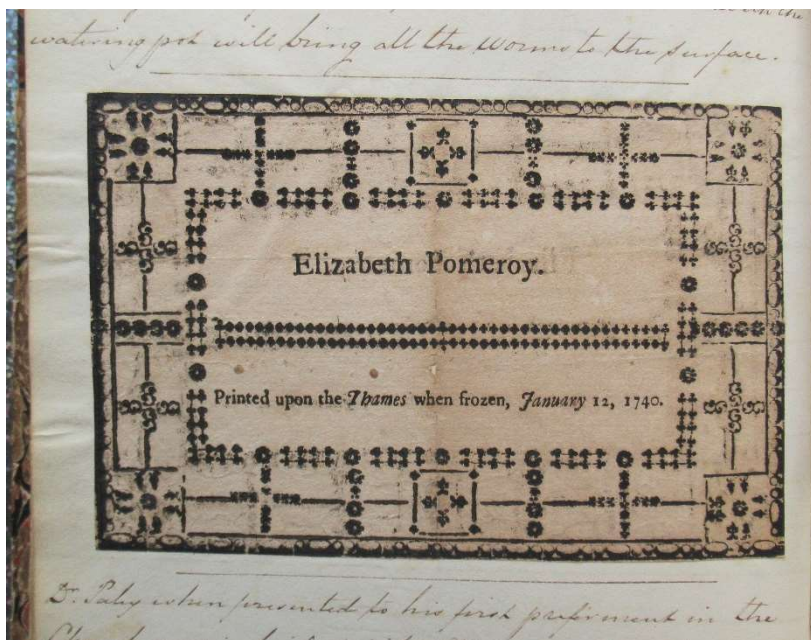 in the
watering pot will bring all the worms to the surface.
Elizabeth Pomeroy.
Printed upon the Thames when frozen, January 12, 1740.
Dr. Paley when presented to his first preferment in the